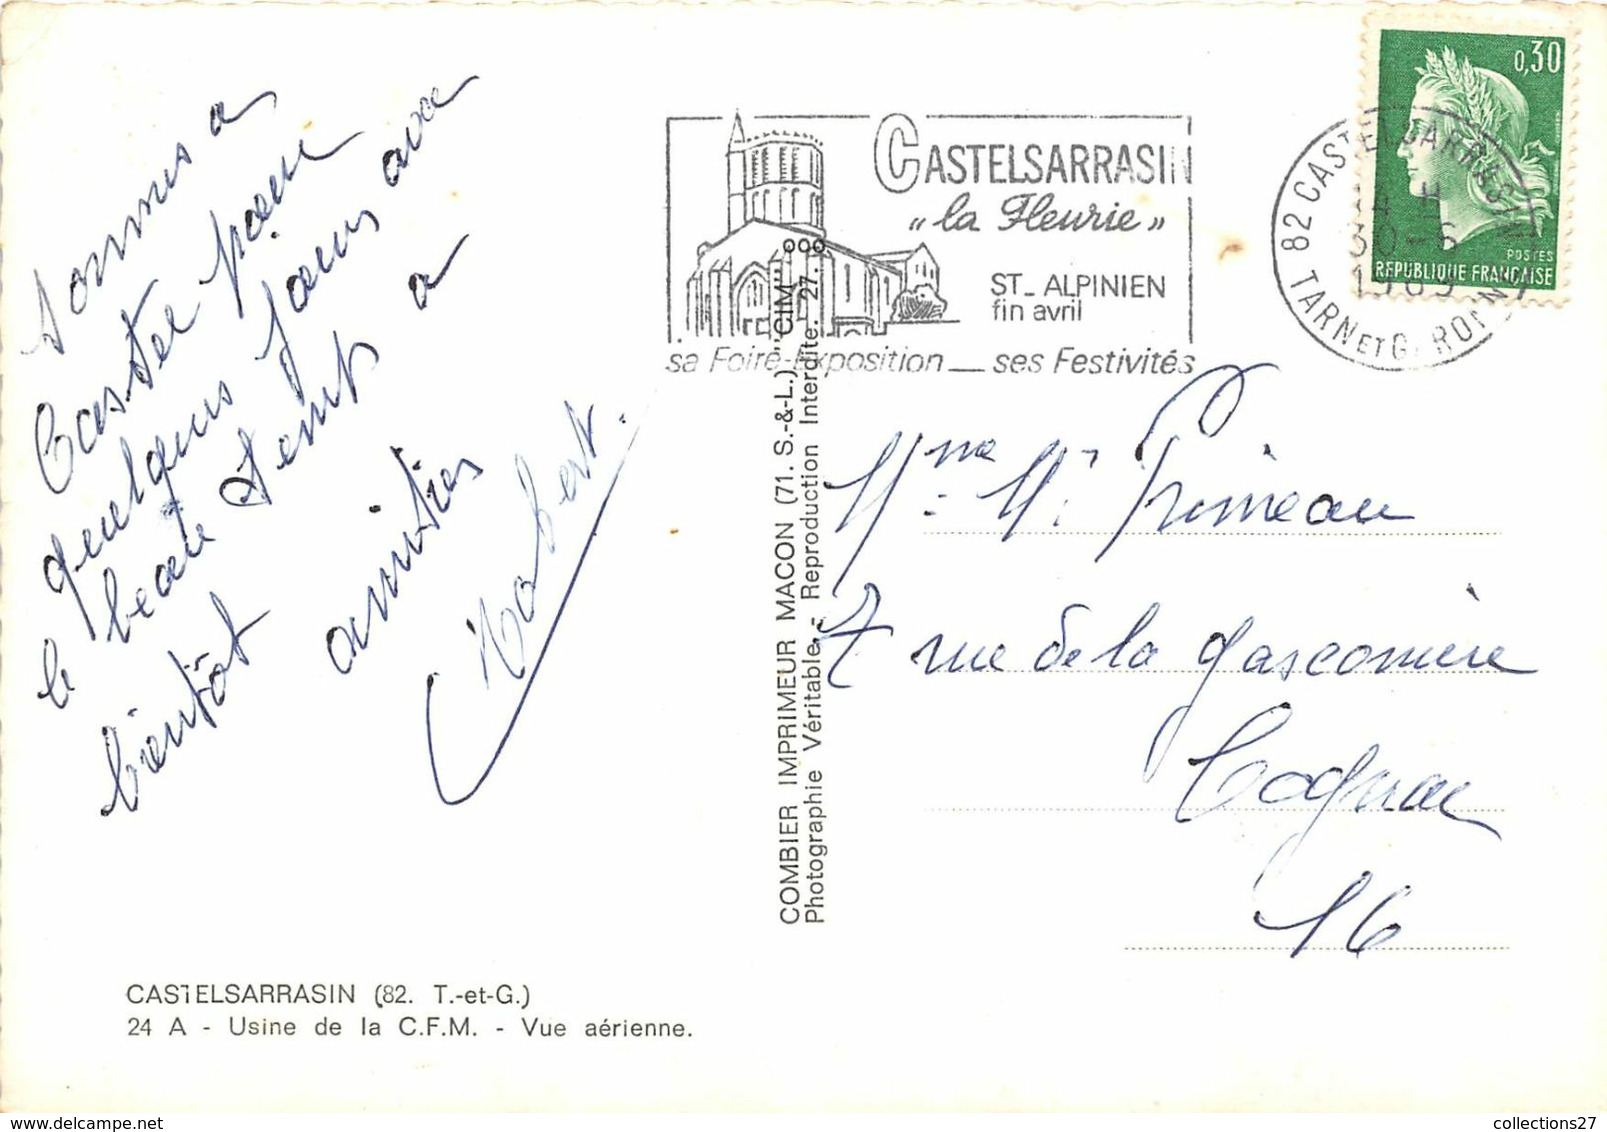 sommes a
Castel pour
quelques jours avec
le beau temps a
bientôt amitiés
CASTELSARRASIN (82. T.-et-G.)
24 A - Usine de la C.F.M. - Vue aérienne.
COMBIER IMPRIMEUR MACON (71. S.-&-L.) "CIM"
Photographie Véritable - Reproduction Interdite. 27. 000
CASTELSARRASIN
"la Fleurie"
ST_ ALPINIEN
fin avril
sa Foire-Exposition _ ses Festivités
82 CASTELSARRASIN
14 H
30-6
1969
TARN ET GARONNE
0,30
POSTES
REPUBLIQUE FRANÇAISE
Mme M. Primeau
7 rue de la gasconnière
Cognac
16
collections27